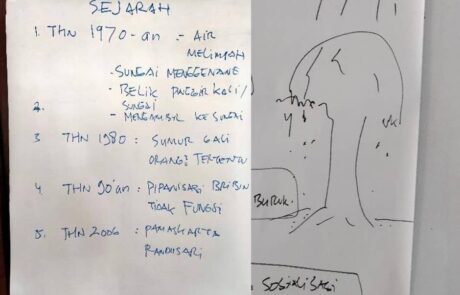 SEJARAH
1. THN 1970-an :- AIR
MELIMPAH
- SUNGAI MENGGENANG
- BELIK PINGGIR KALI/
SUNGAI
2.
- MENGAMBIL KE SUNGAI
3 THN 1980 : SUMUR GALI
ORANG TERTENTU
4 THN 90'an : PIPANISASI BRIBIN
TIDAK FUNGSI
5. THN 2006 : PAMASKARTA
RANDUSARI
BURUK.
SOSIALISASI